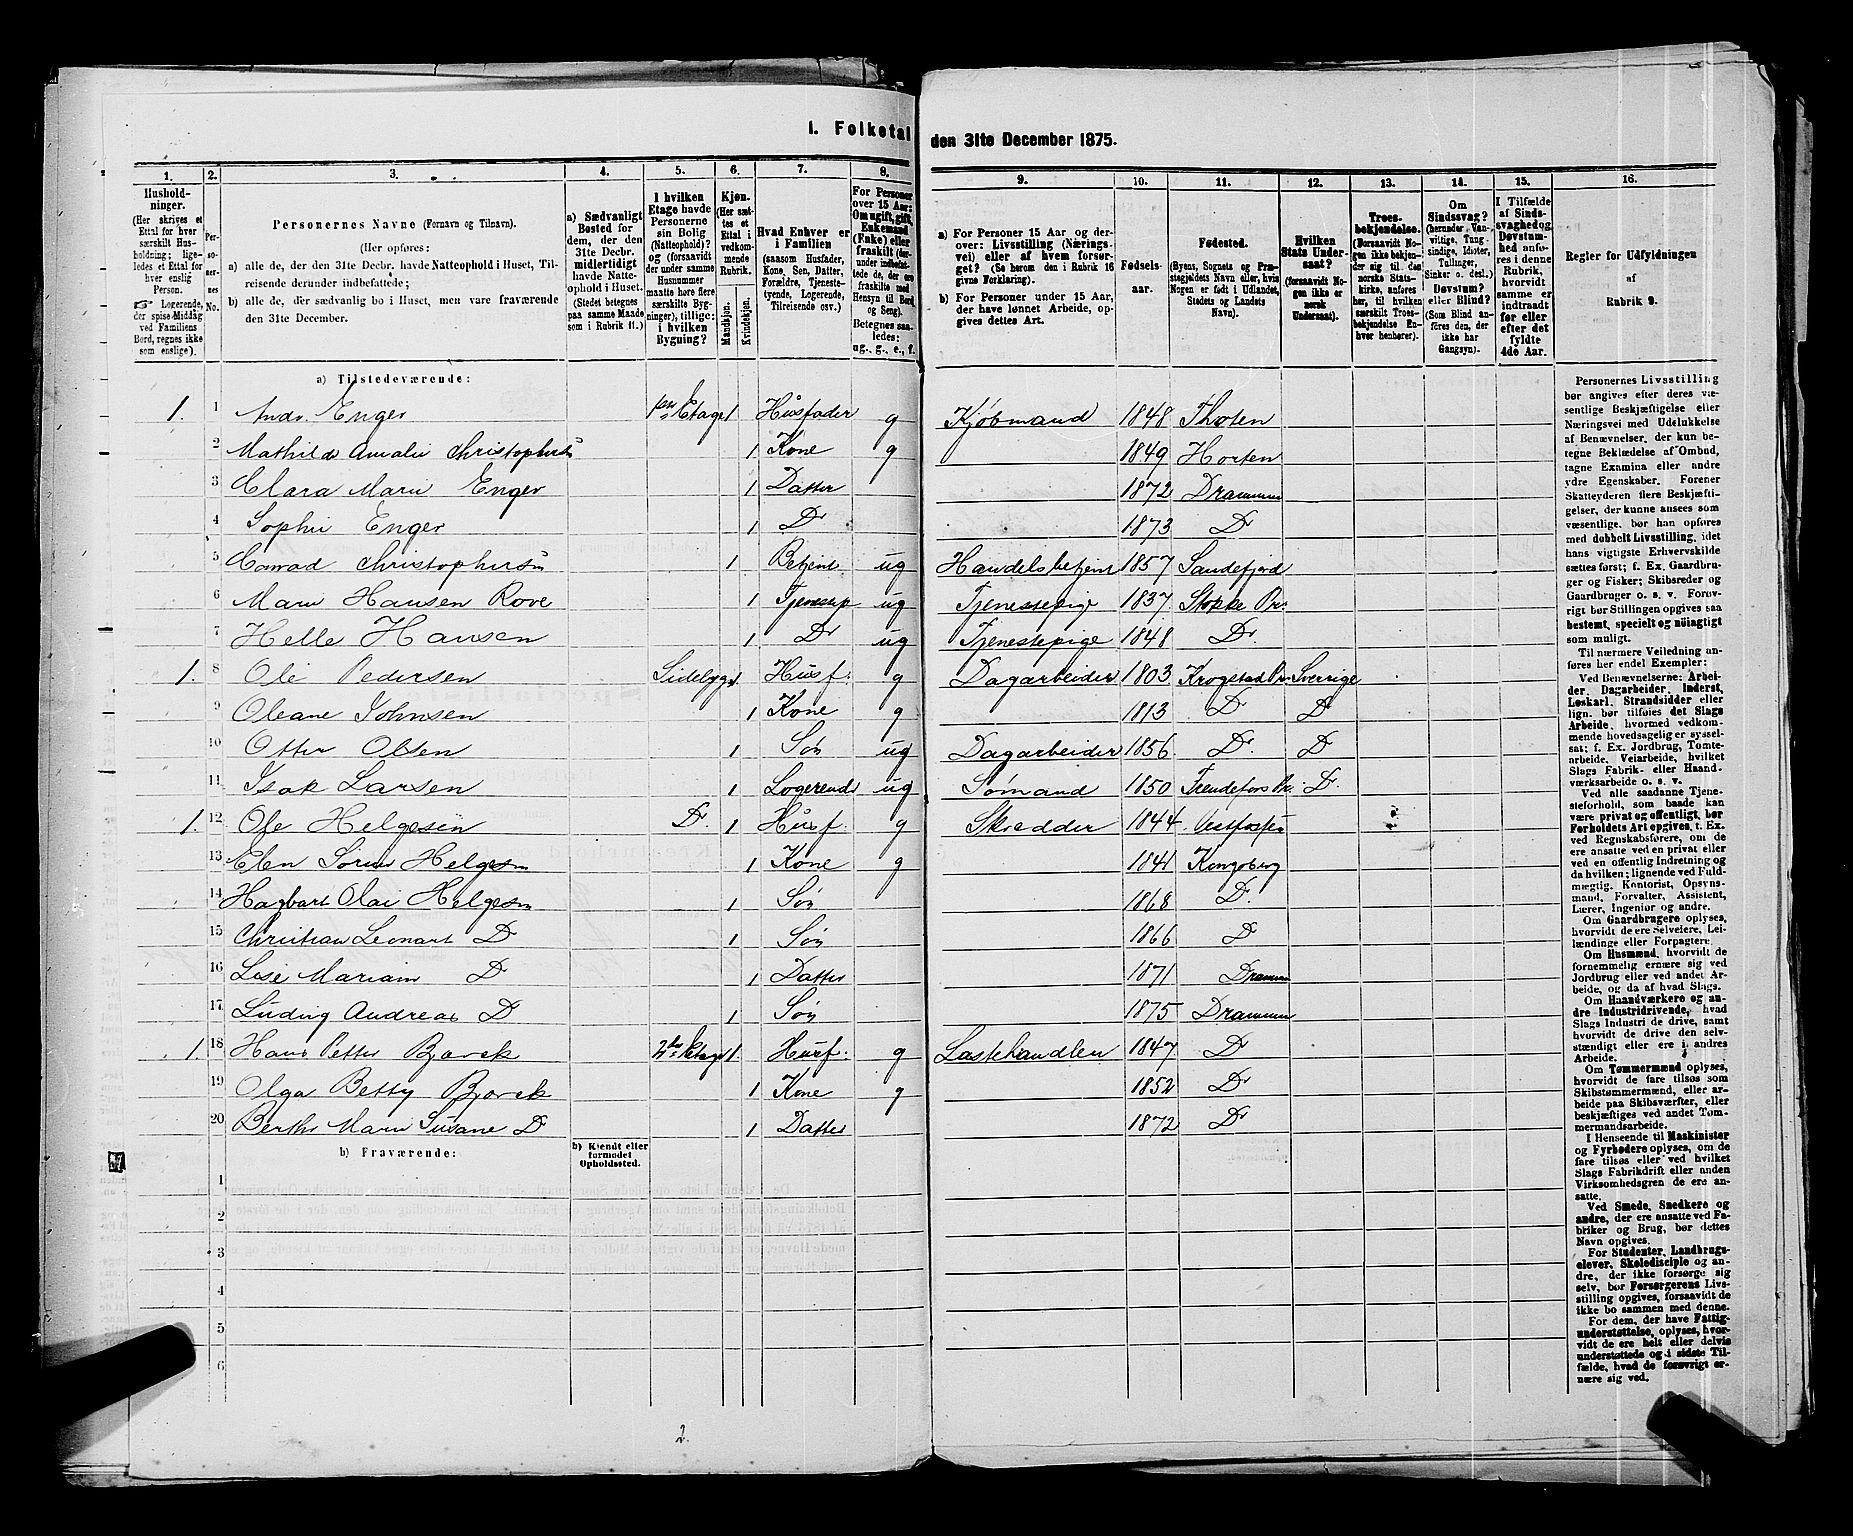 I. Folketal den 31te December 1875.
1. 2. 3. 4. 5. 6. 7. 8. 9. 10. 11. 12. 13. 14. 15. 16.
Husholdninger.
(Her skrives et Ettal for hver særskilt Husholdning; ligeledes et Ettal for hver enslig Person.
☞ Logerende, der spise Middag ved Familiens Bord, regnes ikke som enslige).
Personernes No.
Personernes Navne (Fornavn og Tilnavn).
(Her opføres:
a) alle de, der den 31te Decbr. havde Natteophold i Huset, Tilreisende derunder indbefattede;
b) alle de, der sædvanlig bo i Huset, men vare fraværende den 31te December.
a) Sædvanligt Bosted for dem, der den 31te Decbr. midlertidigt havde Natteophold i Huset.
(Stedet betegnes paa samme Maade som i Rubrik 11.)
I hvilken Etage havde Personerne sin Bolig (Natteophold)? og (forsaavidt der under samme Husnummer maatte høre flere særskilte Bygninger), tillige: i hvilken Bygning?
Kjøn.
(Her sættes et Ettal i vedkommende Rubrik.
Mandkjøn. Kvindekjøn.
Hvad Enhver er i Familien
(saasom Husfader, Kone, Søn, Datter, Forældre, Tjenestetyende, Logerende, Tilreisende osv.)
For Personer over 15 Aar: Om ugift, gift, Enkemand (Enke) eller fraskilt (herunder indbefattede de, der ere fraskilte med Hensyn til Bord og Seng).
Betegnes saaledes: ug., g., e., f.
a) For Personer 15 Aar og derover: Livsstilling (Næringsvei) eller af hvem forsørget? (Se herom den i Rubrik 16 givne Forklaring).
b) For Personer under 15 Aar, der have lønnet Arbeide, opgives dettes Art.
Fødselsaar.
Fødested.
(Byens, Sognets og Præstegjeldets Navn eller, hvis Nogen er født i Udlandet, Stedets og Landets Navn).
Hvilken Stats Undersaat?
(forsaavidt Nogen ikke er norsk Undersaat).
Troesbekjendelse.
(Forsaavidt Nogen ikke bekjender sig til den norske Statskirke, anføres her, til hvilken særskilt Troesbekjendelse Enhver henhører).
Om Sindssvag? (herunder Vanvittige, Tungsindige, Idioter, Tullinger, Sinker o. desl.) Døvstum? eller Blind? (Som Blind anføres den, der ikke har Gangsyn).
I Tilfælde af Sindssvaghed og Døvstumhed anføres i denne Rubrik, hvorvidt samme er indtraadt før eller efter det fyldte 4de Aar.
Regler for Udfyldningen af Rubrik 9.
a) Tilstedeværende:
1. 1 Andr. Enger 1ste Etage 1 Husfader g Kjøbmand 1848 Thoten
2 Mathilde Amalie Christophersn 1 Kone g 1849 Horten
3 Clara Marie Enger 1 Datter 1872 Drammen
4 Sophie Enger 1 Do 1873 Do
5 Conrad Christophersn 1 Betjent ug Handelsbetjent 1857 Sandefjord
6 Marie Hansen Rove 1 Tjenestep ug Tjenestepige 1837 Stokke Pr.
7 Helle Hansen 1 Do ug Tjenestepige 1848 Do.
1. 8 Ole Pedersen Sidebygn 1 Husf. g Dagarbeider 1803 Krogstad Pr. Sverrige
9 Oleane Johnsen 1 Kone g 1813 Do Do
10 Otter Olsen 1 Søn ug Dagarbeider 1856 Do. Do
11 Isak Larsen 1 Logerende ug Sømand 1850 Do.
1. 12 Ole Helgesen Do. 1 Husf. g Skredder 1844 Vestfossen
13 Elen Sørine Helgesn 1 Kone g 1841 Kongsberg
14 Hagbart Olai Helgesn 1 Søn 1868 Do.
15 Christian Leonart Do 1 Søn 1866 Do
16 Lise Mariam Do 1 Datter 1871 Drammen
17 Ludvig Andreas Do 1 Søn 1875 Drammen
1. 18 Hans Petter Bjørck 2den Etage 1 Husf. g Lastehandler 1847 Do
19 Olga Betty Bjørck 1 Kone g 1852 Do
20 Berthe Marie Susane Do 1 Datter 1872 Do
b) Fraværende:
b) Kjendt eller formodet Opholdssted.
1
2
3
4
5
6
2.
Personernes Livsstilling
bør angives efter deres væ-
sentlige Beskjæftigelse eller
Næringsvei med Udelukkelse
af Benævnelser, der kun be-
tegne Beklædelse af Ombud,
tagne Examina eller andre
ydre Egenskaber. Forener
Skatteyderen flere Beskjæfti-
gelser, der kunne ansees som
væsentlige, bør han opføres
med dobbelt Livsstilling, idet
hans vigtigste Erhvervskilde
sættes først; f. Ex. Gaardbru-
ger og Fisker; Skibsreder og
Gaardbruger o. s. v. Forøv-
rigt bør Stillingen opgives saa
bestemt, specielt og nöiagtigt
som muligt.
Til nærmere Veiledning an-
føres her endel Exempler:
Ved Benævnelserne: Arbei-
der, Dagarbeider, Inderst,
Løskarl, Strandsidder eller
lign. bør tilføies det Slags
Arbeide, hvormed vedkom-
mende hovedsagelig er syssel-
sat; f. Ex. Jordbrug, Tomte-
arbeide, Veiarbeide, hvilket
Slags Fabrik- eller Haand-
værksarbeide o. s. v.
Ved alle saadanne Tjene-
steforhold, som baade kan
være privat og offentligt, bør
Forholdets Art opgives, t. Ex.
ved Regnskabsførere, om de
ere ansatte ved en privat eller
ved en offentlig Indretning og
da hvilken; lignende ved Fuld-
mægtig, Kontorist, Opsyns-
mand, Forvalter, Assistent,
Lærer, Ingeniør og andre.
Om Gaardbrugere oplyses,
hvorvidt de ere Selveiere, Lei-
lændinge eller Forpagtere.
Om Husmænd, hvorvidt de
fornemmelig ernære sig ved
Jordbrug eller ved andet Ar-
beide, og da af hvad Slags.
Om Haandværkere og an-
dre Industridrivende, hvad
Slags Industri de drive, samt
hvorvidt de drive den selv-
stændigt eller ere i andres
Arbeide.
Om Tømmermænd oplyses,
hvorvidt de fare tilsøs som
Skibstømmermænd, eller ar-
beide paa Skibsværfter, eller
beskjæftiges ved andet Tøm-
mermandsarbeide.
I Henseende til Maskinister
og Fyrbødere oplyses, om de
fare tilsøs eller ved hvilket
Slags Fabrikdrift eller anden
Virksomhedsgren de ere an-
satte.
Ved Smede, Snedkere og
andre, der ere ansatte ved Fa-
briker og Brug, bør dettes
Navn opgives.
For Studenter, Landbrugs-
elever, Skoledisciple og an-
dre, der ikke forsørge sig
selv, bør Forsørgerens Livs-
stilling opgives, forsaavidt de
ikke bo sammen med denne.
For dem, der have Fattig-
understøttelse, oplyses, hvor-
vidt de ere helt eller delvis
understøttede og i sidste Til-
fælde, hvad de forøvrigt er-
nære sig ved.